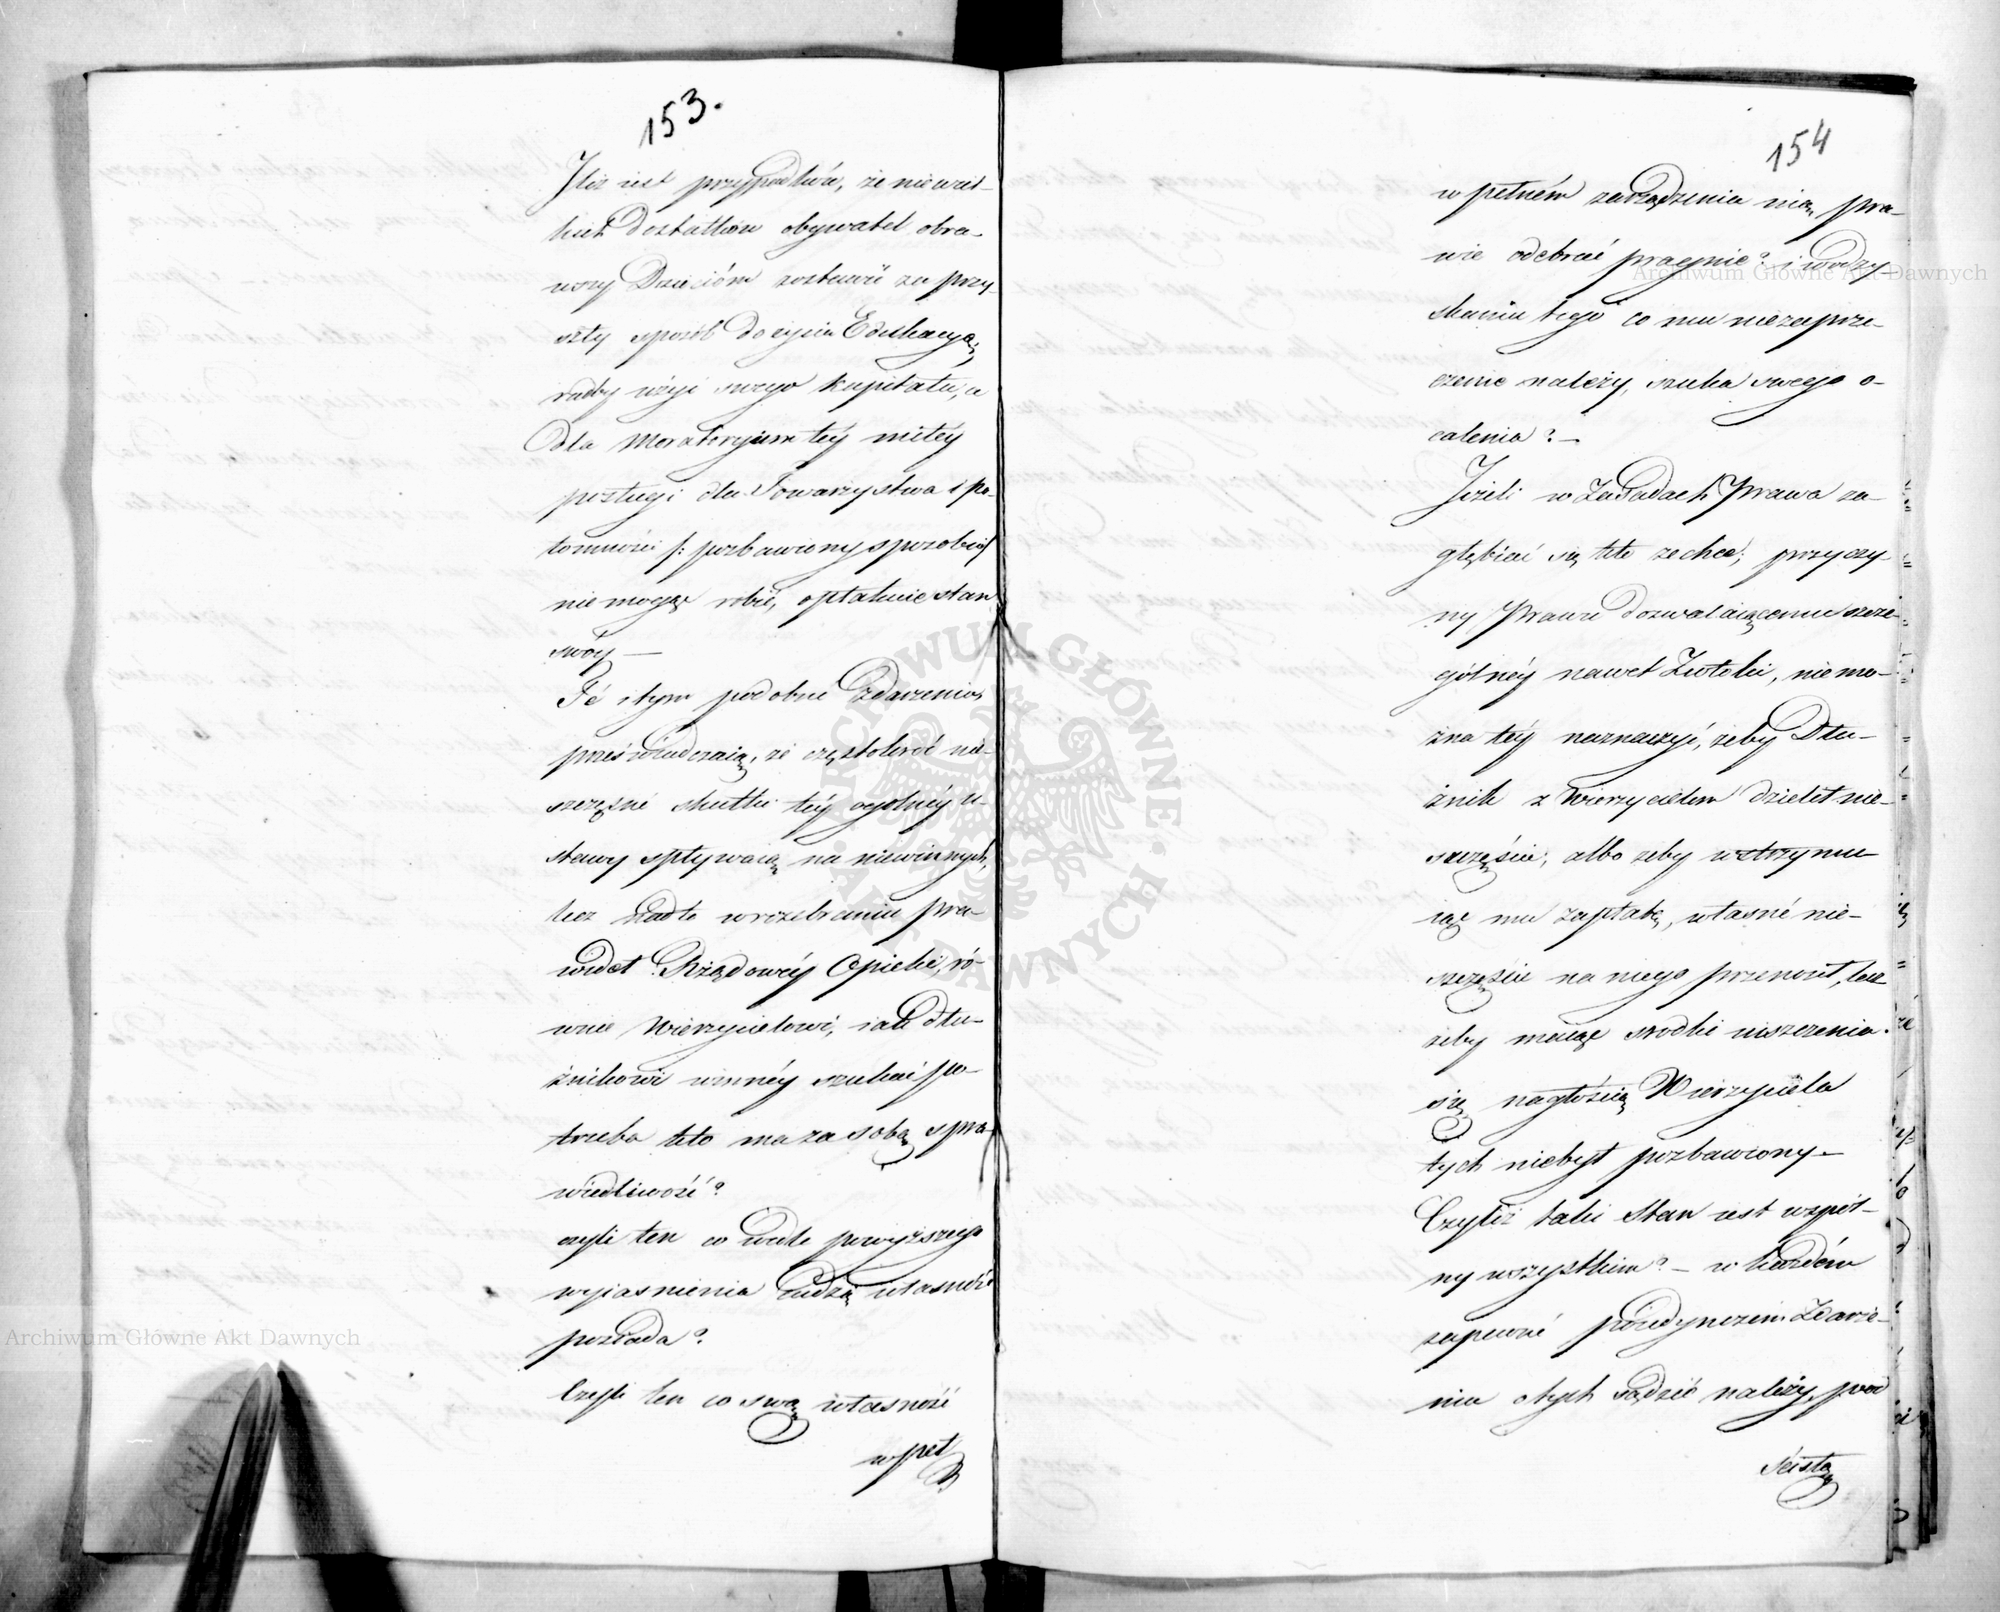 153.
Iliż iest przypadków, że niewiel-
kich Dostatków obywatel obra-
wszy Dzieciom zostawić za przy-
szły sposób do życia Edukacyą,
radby użyć swego kapitału, a
dla Moratoryium téy miłéy
posługi dla Towarzystwa i po-
tomności /: pozbawiony sposobu :/
niemogąc robić, opłakuie stan
swóy —
Té i tym podobne zdarzenia
przeświadczaią, że częstokroć nie-
szczęsné skutki téy ogólnéy u-
stawy spływaią na niewinnych,
lecz nadto w rozebraniu pra-
wideł Rządowéy Opieki, ró-
wnie Wierzycielowi, iak dłu-
żnikowi winnéy szukać po-
trzeba kto ma za sobą spra-
wiedliwość?
czyli ten co wedle powyższego
wyiasnienia Cudzą własność
posiada?
Czyli ten co swą własność
w peł
154
w pełném zarządzenia nią pra-
wie odebrać pragnie? i w odzy-
skaniu tego co mu niezaprze-
czenie należy, szuka swego o-
calenia? —
Jeżeli w Zasadach Prawa za-
głębiać się kto zechce; przyczy-
ny Prawu dozwalaiącemu szcze-
gólnéy nawet Zwłoki, niemo-
żna téy naznaczyć, żeby Dłu-
żnik z Wierzycielem dzielił nie-
szczęście, albo żeby wstrzymu-
iąc mu zapłatę, własné nie-
szczęście na niego przenosił, lecz
żeby maiąc srodki uiszczenia
się nagłością Wierzyciela
tych niebył pozbawiony —
Czyliż taki stan iest wspól-
ny wszystkim? — w każdém
zapewné poiedynczem Zdarze-
niu o tych sądzić należy, pod
scisłą
Archiwum Główne Akt Dawnych
Archiwum Główne Akt Dawnych
ARCHIWUM GŁÓWNE AKT DAWNYCH